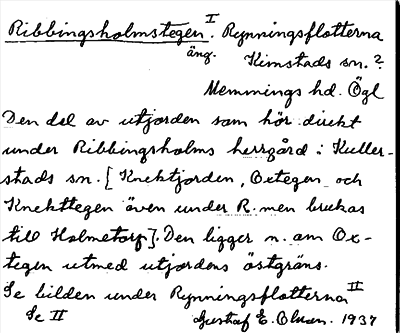 Ribbingsholmstegen I. Rynningsflotterna
äng. Kimstads sn.?
Memmings hd. Ögl
Den del av utjorden som hör direkt
under Ribbingsholms herrgård i Kuller-
stads sn. [Knektjorden, Oxtegen och
Knekttegen även under R. men brukas
till Holmetorp]. Den ligger n. om Ox-
tegen utmed utjordens östgräns.
Se bilden under Rynningsflotterna II
Se II Gustaf E. Olsson. 1937